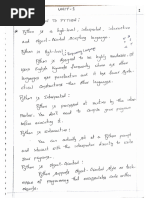 UNIT-I
INTRODUCTION TO PYTHON:
Python is a high-level, interpreted, interactive
and object-oriented scripting language.
Python is High-level:
Python is designed to be highly readable. It
uses English keywords frequently where as other
languages use punctuation and it has fewer syntac-
tical constructions than other languages.
Python is Interpreted:
Python is processed at runtime by the
does not need to compile
program.
Python is Interactive:
You can actually sit at a Python prompt
and interact with the interpreter directly to write
your programs.
Python is Object-Oriented:
Python supports Object-Oriented style or tech-
nique of programming that encapsulates code within
objects.